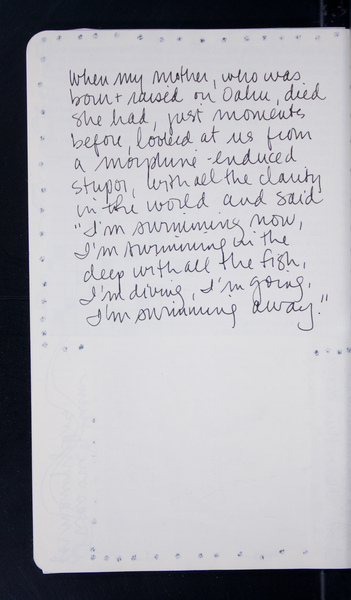 When my mother, who was
born + raised on Oahu, died
she had, just moments
before, looked at us from
a morphine-enduced
stupor, with all the clarity
in the world and said
"I'm swimming now,
I'm swimming in the
deep with all the fish,
I'm diving, I'm going,
I'm swimming away."